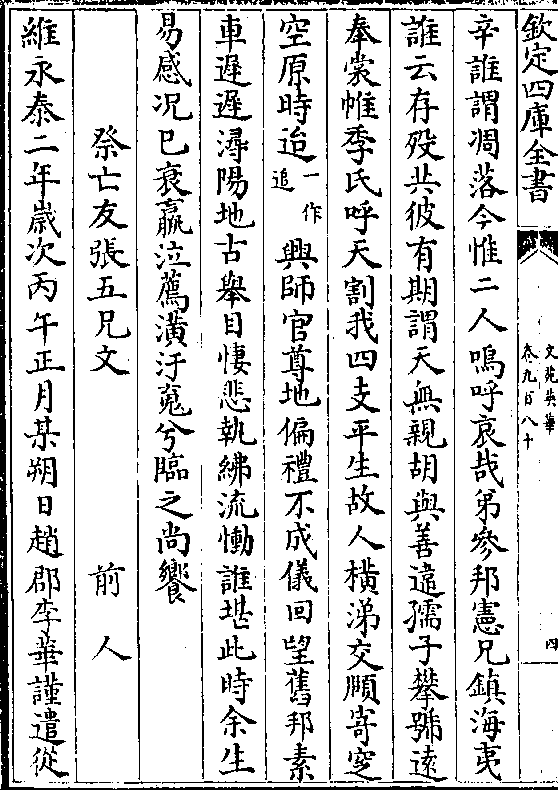 欽定四庫全書
文苑英華
卷九百八十
四
辛誰謂凋落今惟二人嗚呼哀哉弟參邦憲兄鎮海夷
誰云存殁共彼有期謂天無親胡與善違孺子攀號遠
奉裳帷季氏呼天割我四支平生故人橫涕交頤寄窆
空原時迨一作追興師官尊地偏禮不成儀回望舊邦素
車遲遲潯陽地古舉目悽悲執紼流慟誰堪此時余生
易感况已衰羸泣薦潢汙䰟兮臨之尚饗
祭亡友張五兄文 前人
維永泰二年歲次丙午正月某朔日趙郡李華謹遣從